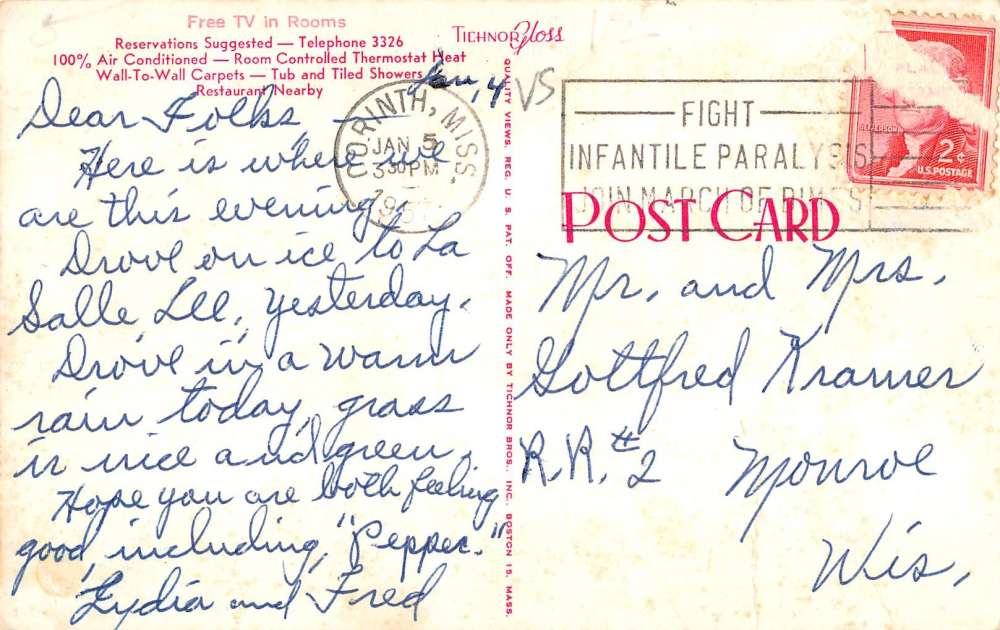 Free TV in Rooms
Reservations Suggested — Telephone 3326
100% Air Conditioned — Room Controlled Thermostat Heat
Wall-To-Wall Carpets — Tub and Tiled Showers
Restaurant Nearby
Jan, 4
Dear Folks —
Here is where we
are this evening.
Drove on ice to La
Salle, Ill, yesterday.
Drove in a warm
rain today, grass
is nice and green.
Hope you are both feeling
good, including, "Pepper."
Lydia and Fred
TICHNOR Gloss
QUALITY VIEWS. REG. U. S. PAT. OFF. MADE ONLY BY TICHNOR BROS., INC., BOSTON 15, MASS.
VS
CORINTH, MISS.
JAN 5
3 30 PM
1957
FIGHT
INFANTILE PARALYSIS
JOIN MARCH OF DIMES
JEFFERSON
2¢
U.S. POSTAGE
POST CARD
Mr. and Mrs.
Gottfred Kramer
R.R. #2 Monroe
Wis,